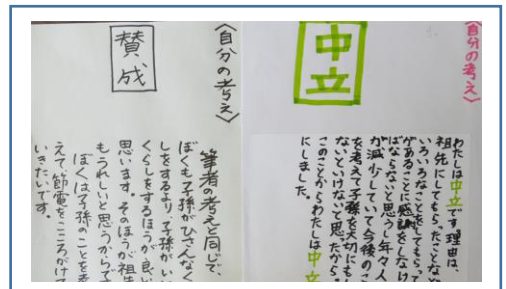 〈自分の考え〉
中立
わたしは中立です。理由は、
祖先にしてもらったことなど
いろいろなことをしてもらって
があることに感謝をしなけ
ばならないと思うし年々人
が減少していて今後のこ
を考えて子孫を大切にも
ないといけないと思ったから。
このことからわたしは中立
にしました。
〈自分の考え〉
賛成
筆者の考えと同じで、
ぼくも子孫がひさんなく
しをするより、子孫がいい
くらしをするほうが良い
思います。そのほうが祖
もうれしいと思うからで
ぼくは子孫のことを考
えて節電をこころがけて
いきたいです。